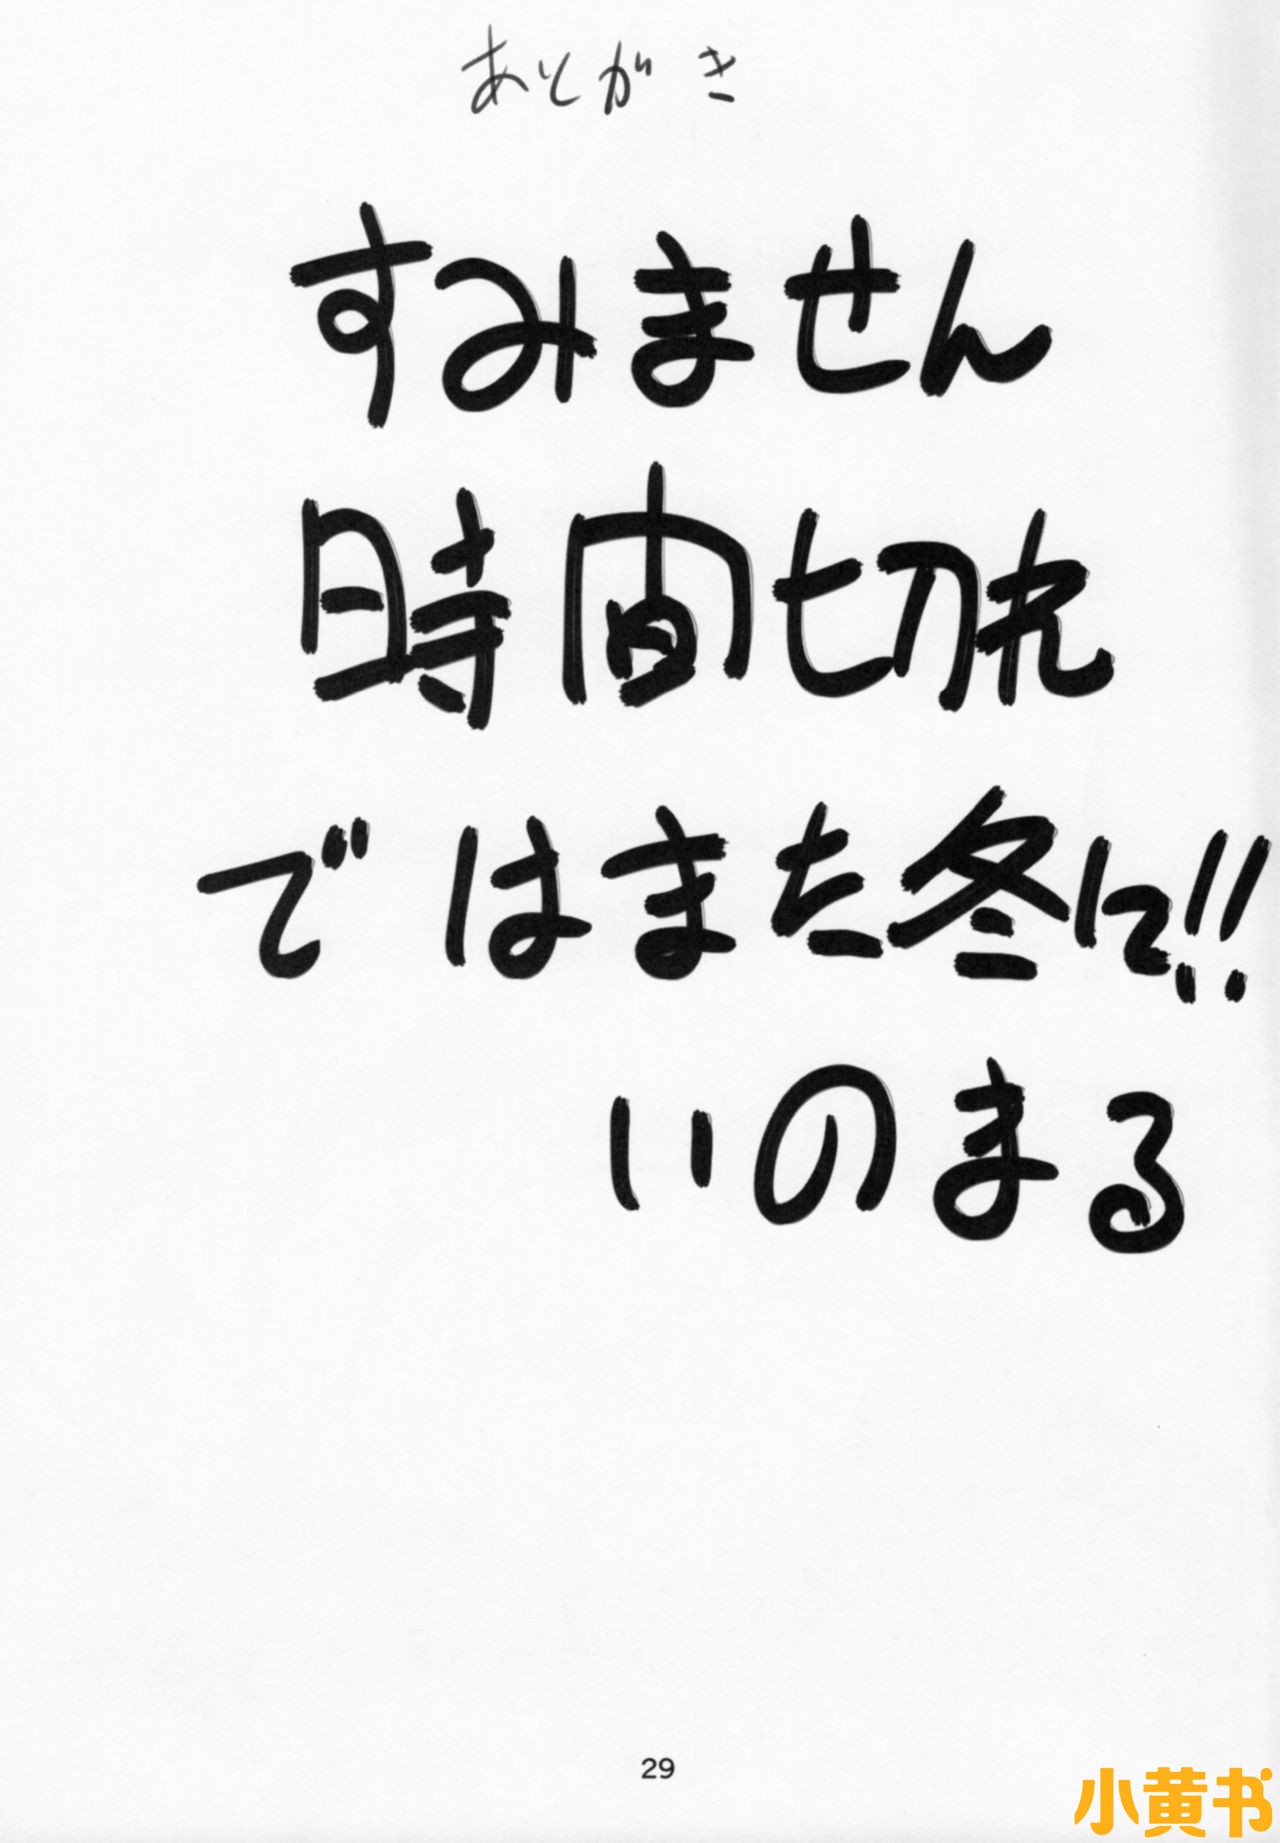 あとがき
すみません
時間切れ
ではまた冬に!!
いのまる
29
小黄书